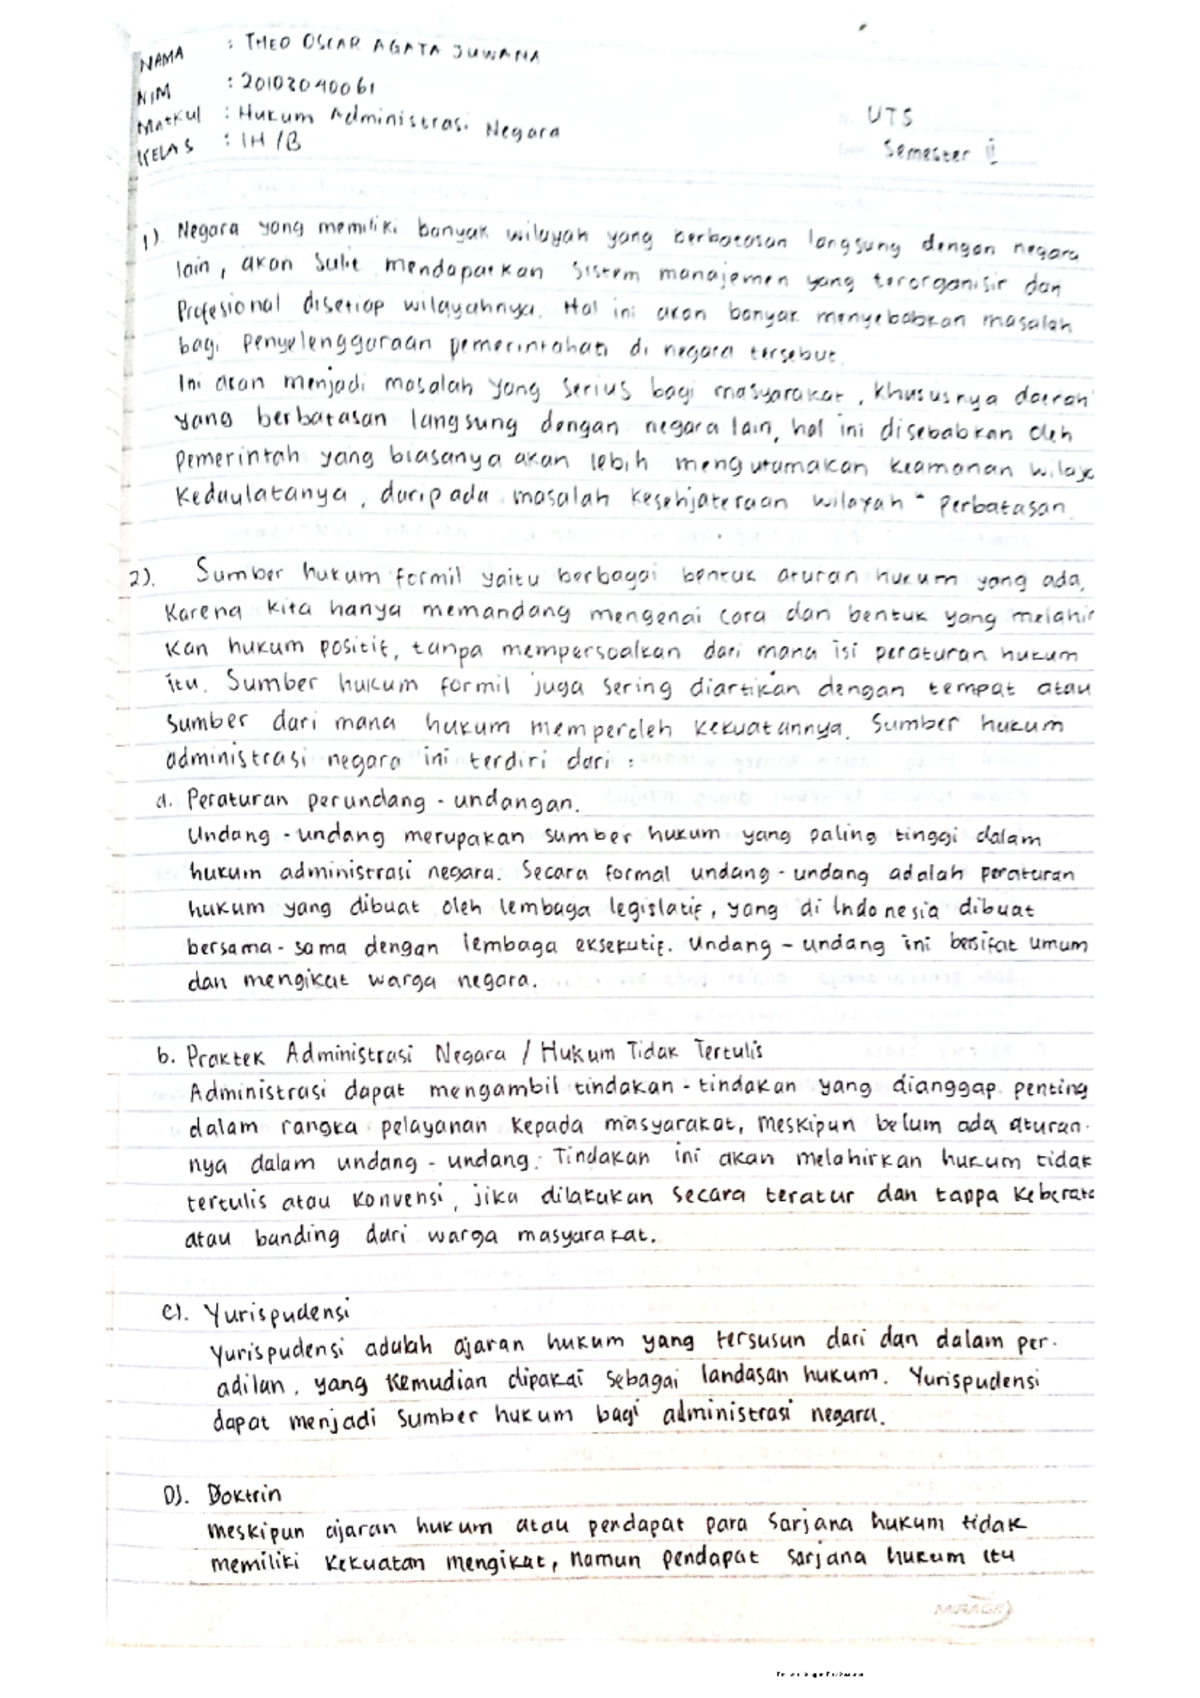 NAMA : THEO OSCAR AGATA JUWANA
NIM : 20102040061
Matkul : Hukum Administrasi Negara
KELAS : IH /B
UTS
Semester II
1). Negara yang memiliki banyak wilayah yang berbatasan langsung dengan negara
lain, akan sulit mendapatkan sistem manajemen yang terorganisir dan
Profesional disetiap wilayahnya. Hal ini akan banyak menyebabkan masalah
bagi penyelenggaraan pemerintahan di negara tersebut.
Ini akan menjadi masalah yang serius bagi masyarakat, khususnya daerah
yang berbatasan langsung dengan negara lain, hal ini disebabkan oleh
Pemerintah yang biasanya akan lebih mengutamakan keamanan wilay
Kedaulatanya, daripada masalah kesehjateraan wilayah" Perbatasan.
2). Sumber hukum formil yaitu berbagai bentuk aturan hukum yang ada.
Karena kita hanya memandang mengenai cara dan bentuk yang melahir
kan hukum positif, tanpa mempersoalkan dari mana isi peraturan hukum
itu. Sumber hukum formil juga sering diartikan dengan tempat atau
Sumber dari mana hukum memperoleh kekuatannya. Sumber hukum
administrasi negara ini terdiri dari :
a. Peraturan perundang - undangan.
Undang - undang merupakan sumber hukum yang paling tinggi dalam
hukum administrasi negara. Secara formal undang - undang adalah peraturan
hukum yang dibuat oleh lembaga legislatif, yang di Indonesia dibuat
bersama - sama dengan lembaga eksekutif. Undang - undang ini bersifat umum
dan mengikat warga negara.
b. Praktek Administrasi Negara / Hukum Tidak Tertulis
Administrasi dapat mengambil tindakan - tindakan yang dianggap penting
dalam rangka pelayanan kepada masyarakat, meskipun belum ada aturan-
nya dalam undang - undang. Tindakan ini akan melahirkan hukum tidak
tertulis atau konvensi, jika dilakukan secara teratur dan tanpa keberata
atau banding dari warga masyarakat.
C). Yurispudensi
Yurispudensi adalah ajaran hukum yang tersusun dari dan dalam per-
adilan, yang kemudian dipakai sebagai landasan hukum. Yurispudensi
dapat menjadi sumber hukum bagi administrasi negara.
D). Doktrin
Meskipun ajaran hukum atau pendapat para sarjana hukum tidak
memiliki kekuatan mengikat, namun pendapat sarjana hukum itu
MIRAGE